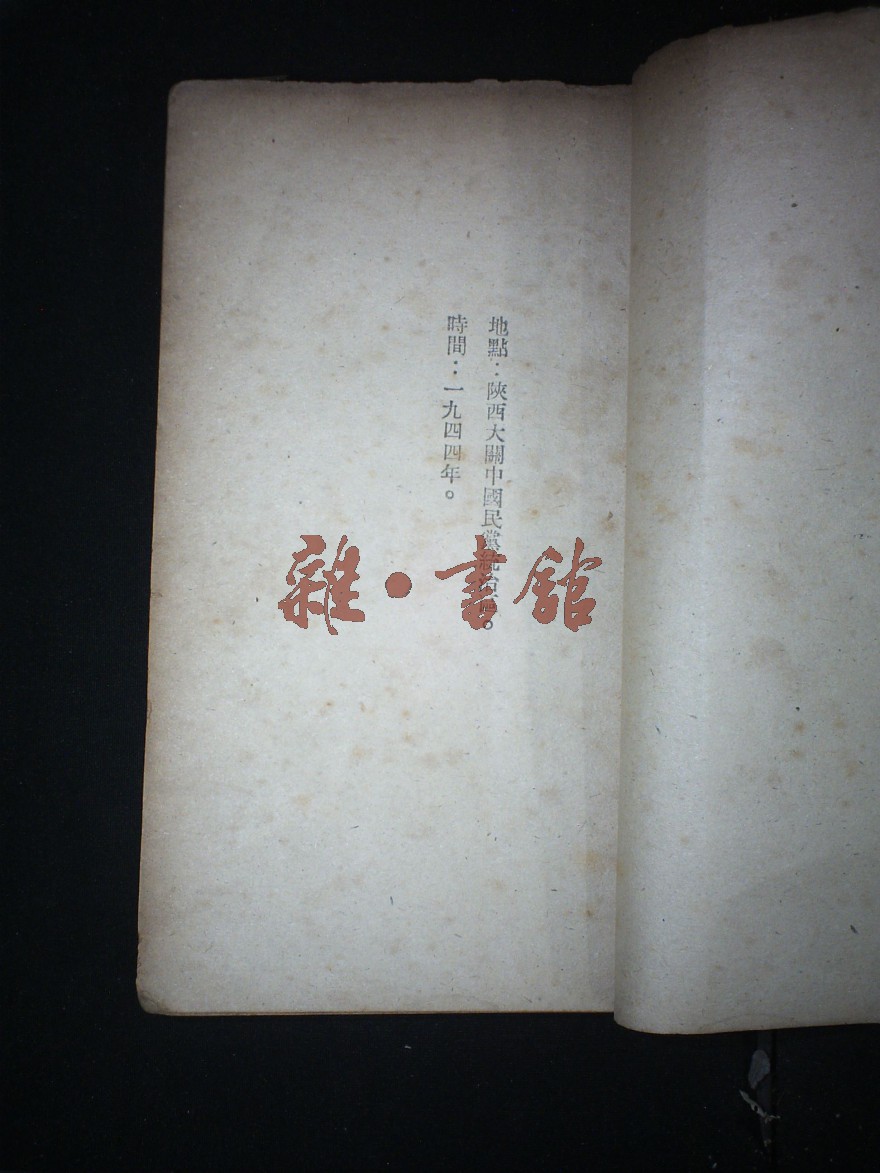 地點：陝西大關中國民黨統治區。
時間：一九四四年。
雜·書館